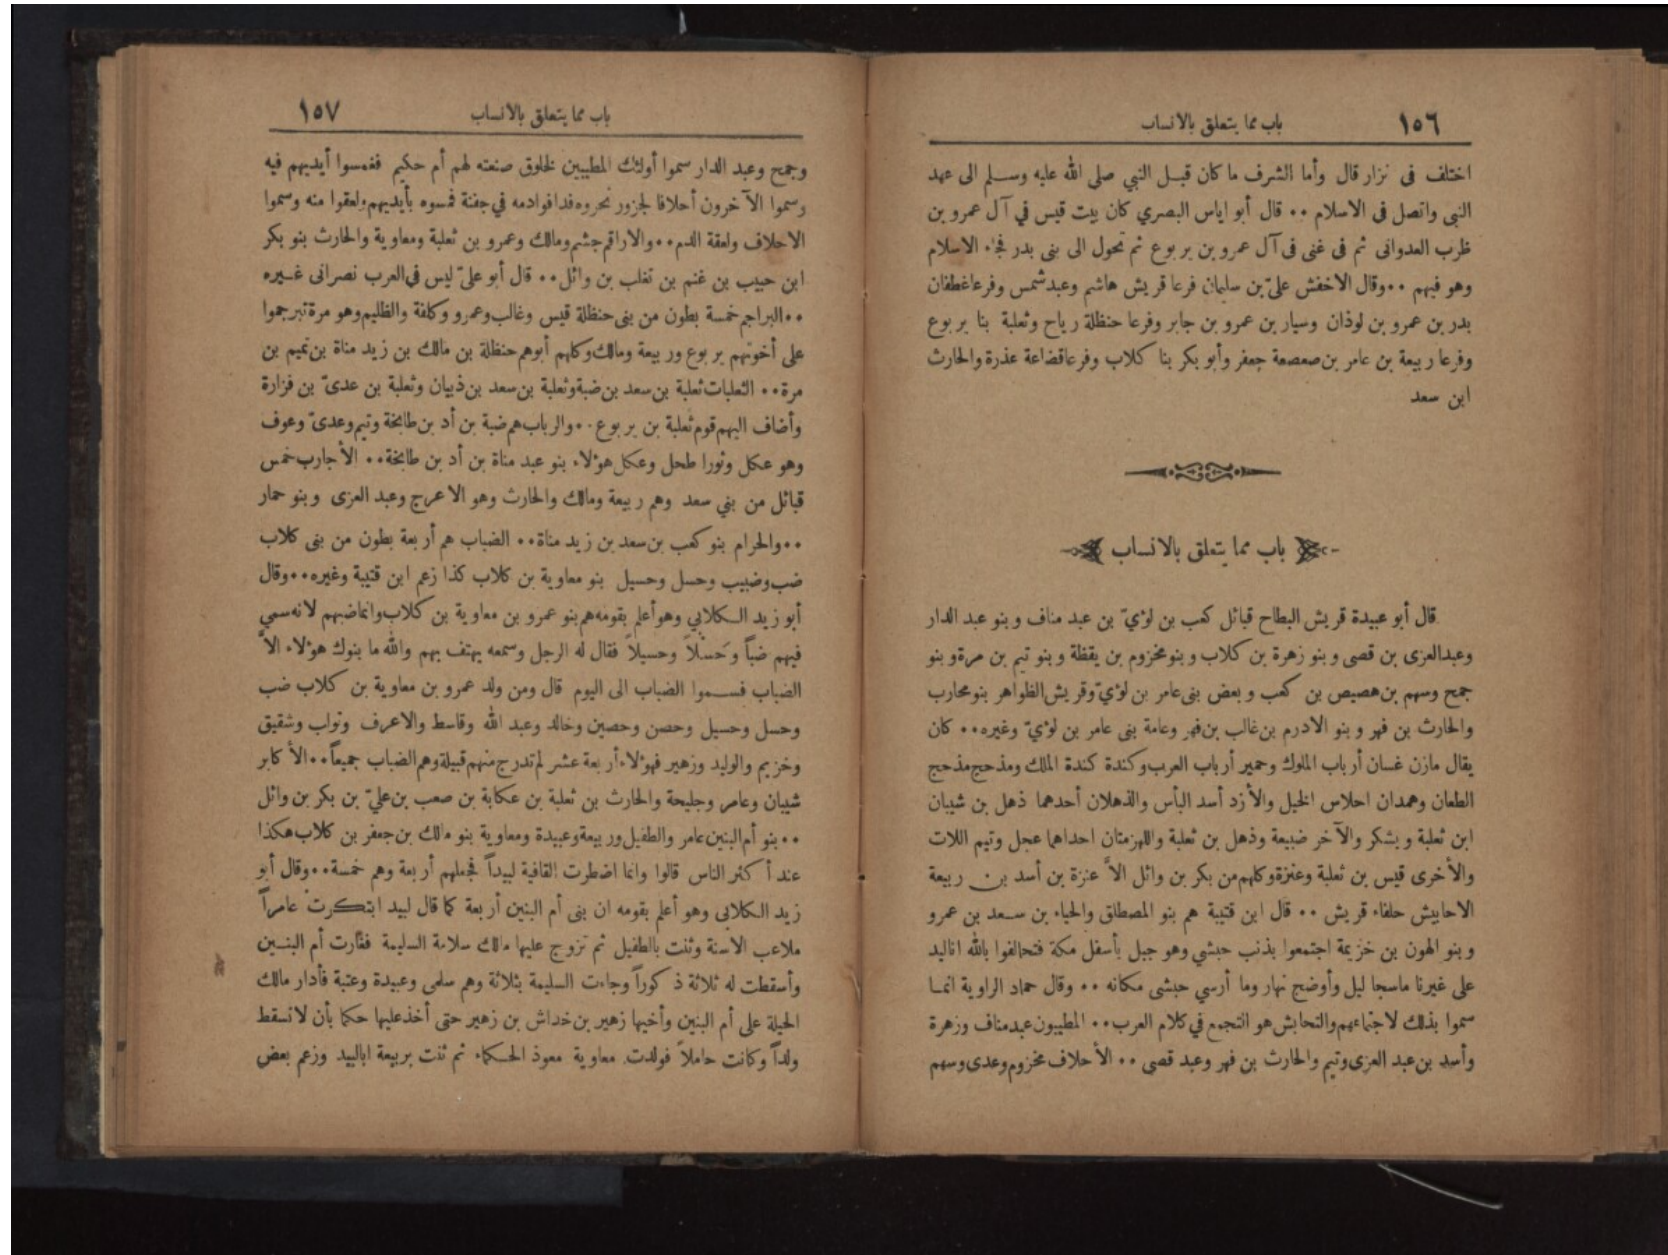 ١٥٦ باب مما يتعلق بالانساب
اختلف فى نزار قال وأما الشرف ما كان قبل النبي صلى الله عليه وسلم الى عهد
النبى واتصل فى الاسلام ٠٠ قال أبو اياس البصري كان بيت قيس في آل عمرو بن
ظرب العدوانى ثم فى غنى فى آل عمرو بن يربوع ثم تحول الى بنى بدر فجاء الاسلام
وهو فيهم ٠٠ وقال الاخفش علىّ بن سليمان فرعا قريش هاشم وعبد شمس وفرعا غطفان
بدر بن عمرو بن لوذان وسيار بن عمرو بن جابر وفرعا حنظلة رياح وثعلبة بنا يربوع
وفرعا ربيعة بن عامر بن صعصعة جعفر وأبو بكر بنا كلاب وفرعا قضاعة عذرة والحارث
ابن سعد
باب مما يتعلق بالانساب
قال أبو عبيدة قريش البطاح قبائل كعب بن لؤيّ بن عبد مناف وبنو عبد الدار
وعبدالعزى بن قصى وبنو زهرة بن كلاب وبنو مخزوم بن يقظة وبنو تيم بن مرة وبنو
جمح وسهم بن هصيص بن كعب وبعض بنى عامر بن لؤيّ وقريش الظواهر بنو محارب
والحارث بن فهر وبنو الادرم بن غالب بن فهر وعامة بنى عامر بن لؤيّ وغيره ٠٠ كان
يقال مازن غسان أرباب الملوك وحمير أرباب العرب وكندة كندة الملك ومذحج مذحج
الطعان وهمدان احلاس الخيل والأزد أسد البأس والذهلان أحدهما ذهل بن شيبان
ابن ثعلبة ويشكر والآخر ضبيعة وذهل بن ثعلبة واللهزمتان احداهما عجل وتيم اللات
والأخرى قيس بن ثعلبة وعنزة وكلهم من بكر بن وائل الاَّ عنزة بن أسد بن ربيعة
الاحابيش حلفاء قريش ٠٠ قال ابن قتيبة هم بنو المصطلق والحياء بن سعد بن عمرو
وبنو الهون بن خزيمة اجتمعوا بذنب حبشي وهو جبل بأسفل مكة فتحالفوا بالله اناليد
على غيرنا ماسجا ليل وأوضح نهار وما أرسي حبشى مكانه ٠٠ وقال حماد الراوية انما
سموا بذلك لاجتماعهم والتحابش هو التجمع في كلام العرب ٠٠ المطيبون عبد مناف وزهرة
وأسد بن عبد العزى وتيم والحارث بن فهر وعبد قصى ٠٠ الأحلاف مخزوم وعدى وسهم
باب مما يتعلق بالانساب ١٥٧
وجمح وعبد الدار سموا أولئك المطيبين لخلوق صنعته لهم أم حكيم فغمسوا أيديهم فيه
وسموا الآخرون أحلافا لجزور نحروه فدافوا دمه في جفنة فمسوه بأيديهم ولعقوا منه وسموا
الاحلاف ولعقة الدم ٠٠ والاراقم جشم ومالك وعمرو بن ثعلبة ومعاوية والحارث بنو بكر
ابن حبيب بن غنم بن تغلب بن وائل ٠٠ قال أبو علىّ ليس في العرب نصرانى غيره
٠٠ البراجم خمسة بطون من بنى حنظلة قيس وغالب وعمرو وكلفة والظليم وهو مرة تبرجموا
على أخوتهم يربوع وربيعة ومالك وكلهم أبوهم حنظلة بن مالك بن زيد مناة بن تميم بن
مرة ٠٠ الثعلبات ثعلبة بن سعد بن ضبة وثعلبة بن سعد بن ذبيان وثعلبة بن عدىّ بن فزارة
وأضاف اليهم قوم ثعلبة بن يربوع ٠٠ والرباب هم ضبة بن أد بن طابخة وتيم وعدىّ وعوف
وهو عكل وثورا طحل وعكل هؤلاء بنو عبد مناة بن أد بن طابخة ٠٠ الأجارب خمس
قبائل من بني سعد وهم ربيعة ومالك والحارث وهو الاعرج وعبد العزى وبنو حمار
٠٠ والحرام بنو كعب بن سعد بن زيد مناة ٠٠ الضباب هم أربعة بطون من بنى كلاب
ضب وضبيب وحسل وحسيل بنو معاوية بن كلاب كذا زعم ابن قتيبة وغيره ٠٠ وقال
أبو زيد الكلابي وهو أعلم بقومه هم بنو عمرو بن معاوية بن كلاب وانما ضبهم لانه سمي
فيهم ضباً وحسلاً وحسيلاً فقال له الرجل وسمعه يهتف بهم والله ما بنوك هؤلاء الاَّ
الضباب فسموا الضباب الى اليوم قال ومن ولد عمرو بن معاوية بن كلاب ضب
وحسل وحسيل وحصن وحصين وخالد وعبد الله وقاسط والاعرف وتواب وشقيق
وخزيم والوليد وزهير فهؤلاء أربعة عشر لم تدرج منهم قبيلة وهم الضباب جميعاً ٠٠ الأكابر
شيبان وعامر وجليحة والحارث بن ثعلبة بن عكابة بن صعب بن عليّ بن بكر بن وائل
٠٠ بنو أم البنين عامر والطفيل وربيعة وعبيدة ومعاوية بنو مالك بن جعفر بن كلاب هكذا
عند أكثر الناس قالوا وانما اضطرت القافية لبيداً فجعلهم أربعة وهم خمسة ٠٠ وقال أبو
زيد الكلابى وهو أعلم بقومه ان بنى أم البنين أربعة كما قال لبيد ابتكرت عامراً
ملاعب الاسنة وثنت بالطفيل ثم تزوج عليها مالك سلامة السليمة فغارت أم البنين
وأسقطت له ثلاثة ذكوراً وجاءت السليمة بثلاثة وهم سلمى وعبيدة وعتبة فأدار مالك
الحيلة على أم البنين وأخيها زهير بن خداش بن زهير حتى أخذ عليها حكما بأن لا تسقط
ولداً وكانت حاملاً فولدت معاوية معوذ الحكماء ثم ثنت بربيعة ابالبيد وزعم بعض